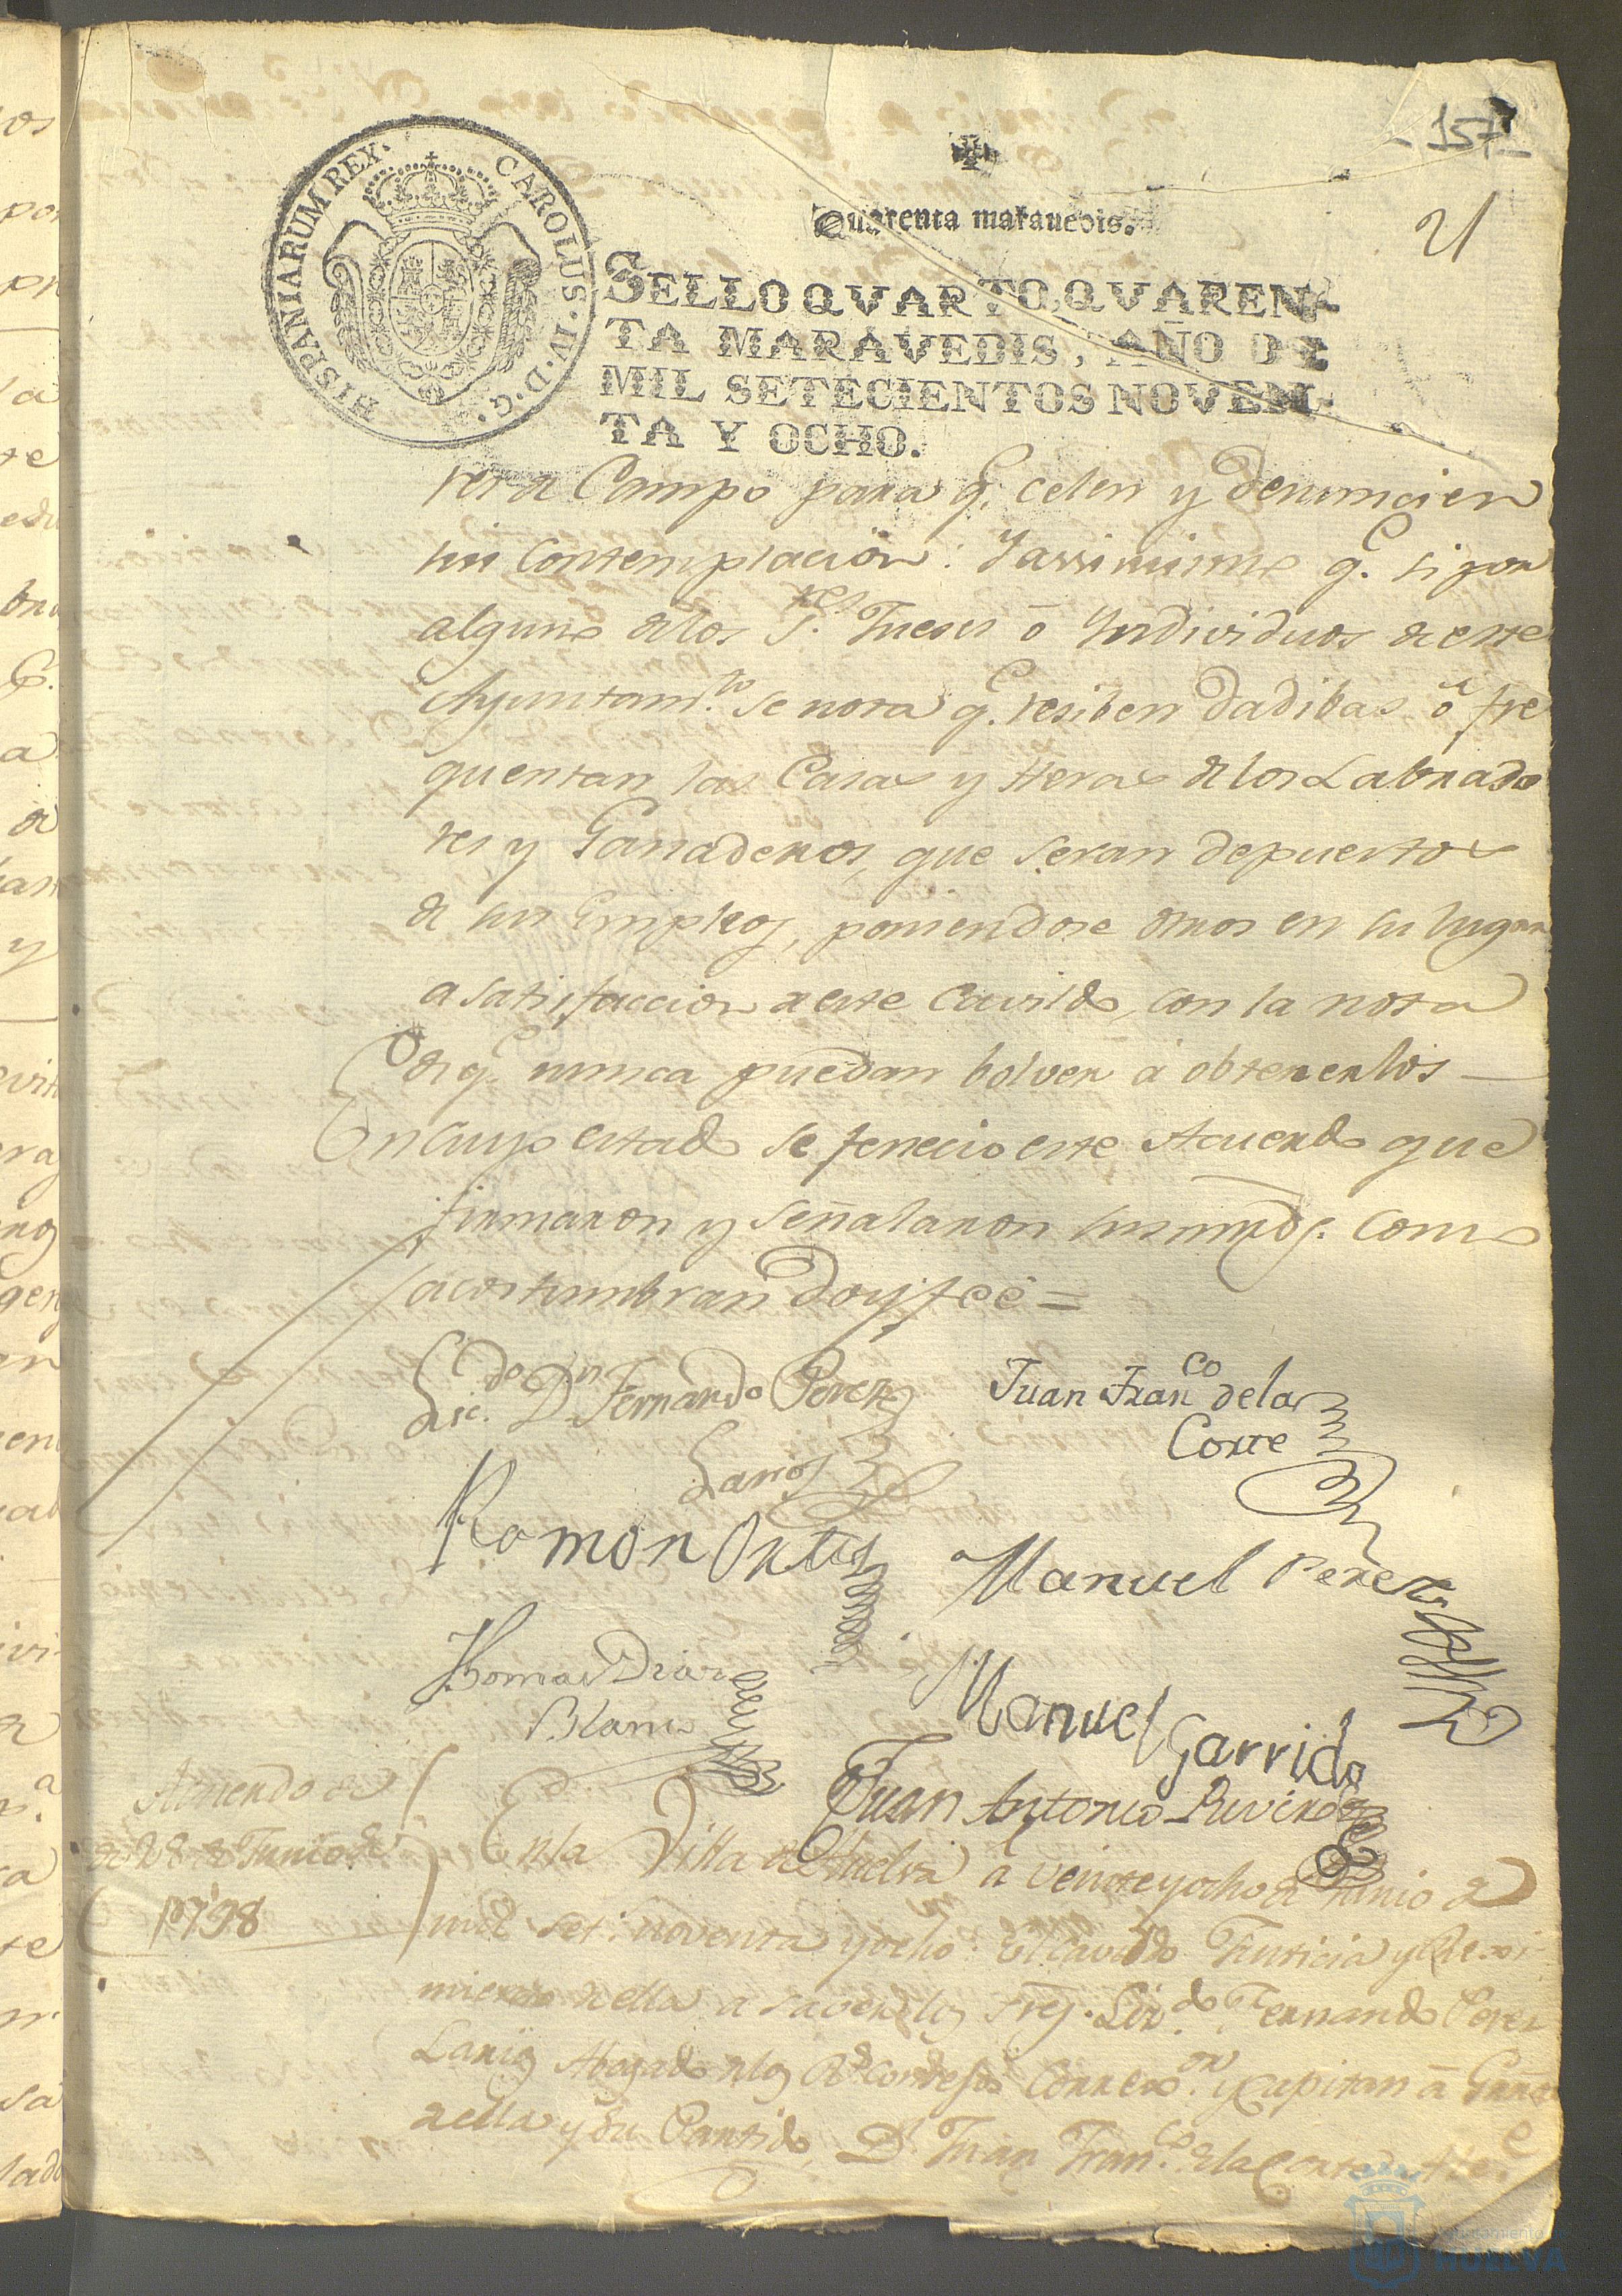 157
21
Quarenta marauedis.
HISPANIARUM REX. CAROLUS. IV. D. G.
SELLO QVARTO, QVAREN-
TA MARAVEDIS, AÑO DE
MIL SETECIENTOS NOVEN-
TA Y OCHO.
de Campo para q.e celen y denuncien
sin contemplacion: Y assimismo q.e si por
alguno de los S.res Jueses ô Yndividuos de este
Ayuntam.to se nota q.e resiben dadibas ô fre
quentan las Casas y Heras de los Labrado
res y Ganaderos, que seran depuestos
de sus Empleos, poniendose otros en su lugar
a satisfaccion de este Cavildo, con la nota
de q.e nunca puedan bolver á obtenerlos
En cuyo estado se fenecio este Acuerdo que
firmaron y señalaron sus mrds. como
acostumbran doy feé =
Lic.do Dn Fernando Perez
Larios
Juan Fran.co de la
Corte
Ramon Ortis
Manuel Perez
Thomas Diaz
Blanco
Manuel Garrido
Juan Antonio Rivero
Acuerdo de
28 de Junio de
1798
En la Villa de Huelva á veinte y ocho de Junio de
mil set.s noventa y ocho: El Cavildo Justicia y Rexi
miento de ella a saver los Sres. Liz.do Fernando Perez
Larios Abogado de los R.s Consejos Correx.or y Capitan á Grra
de ella y su Partido, Dn Juan Fran.co de la Corte
Ayuntamiento de
HUELVA